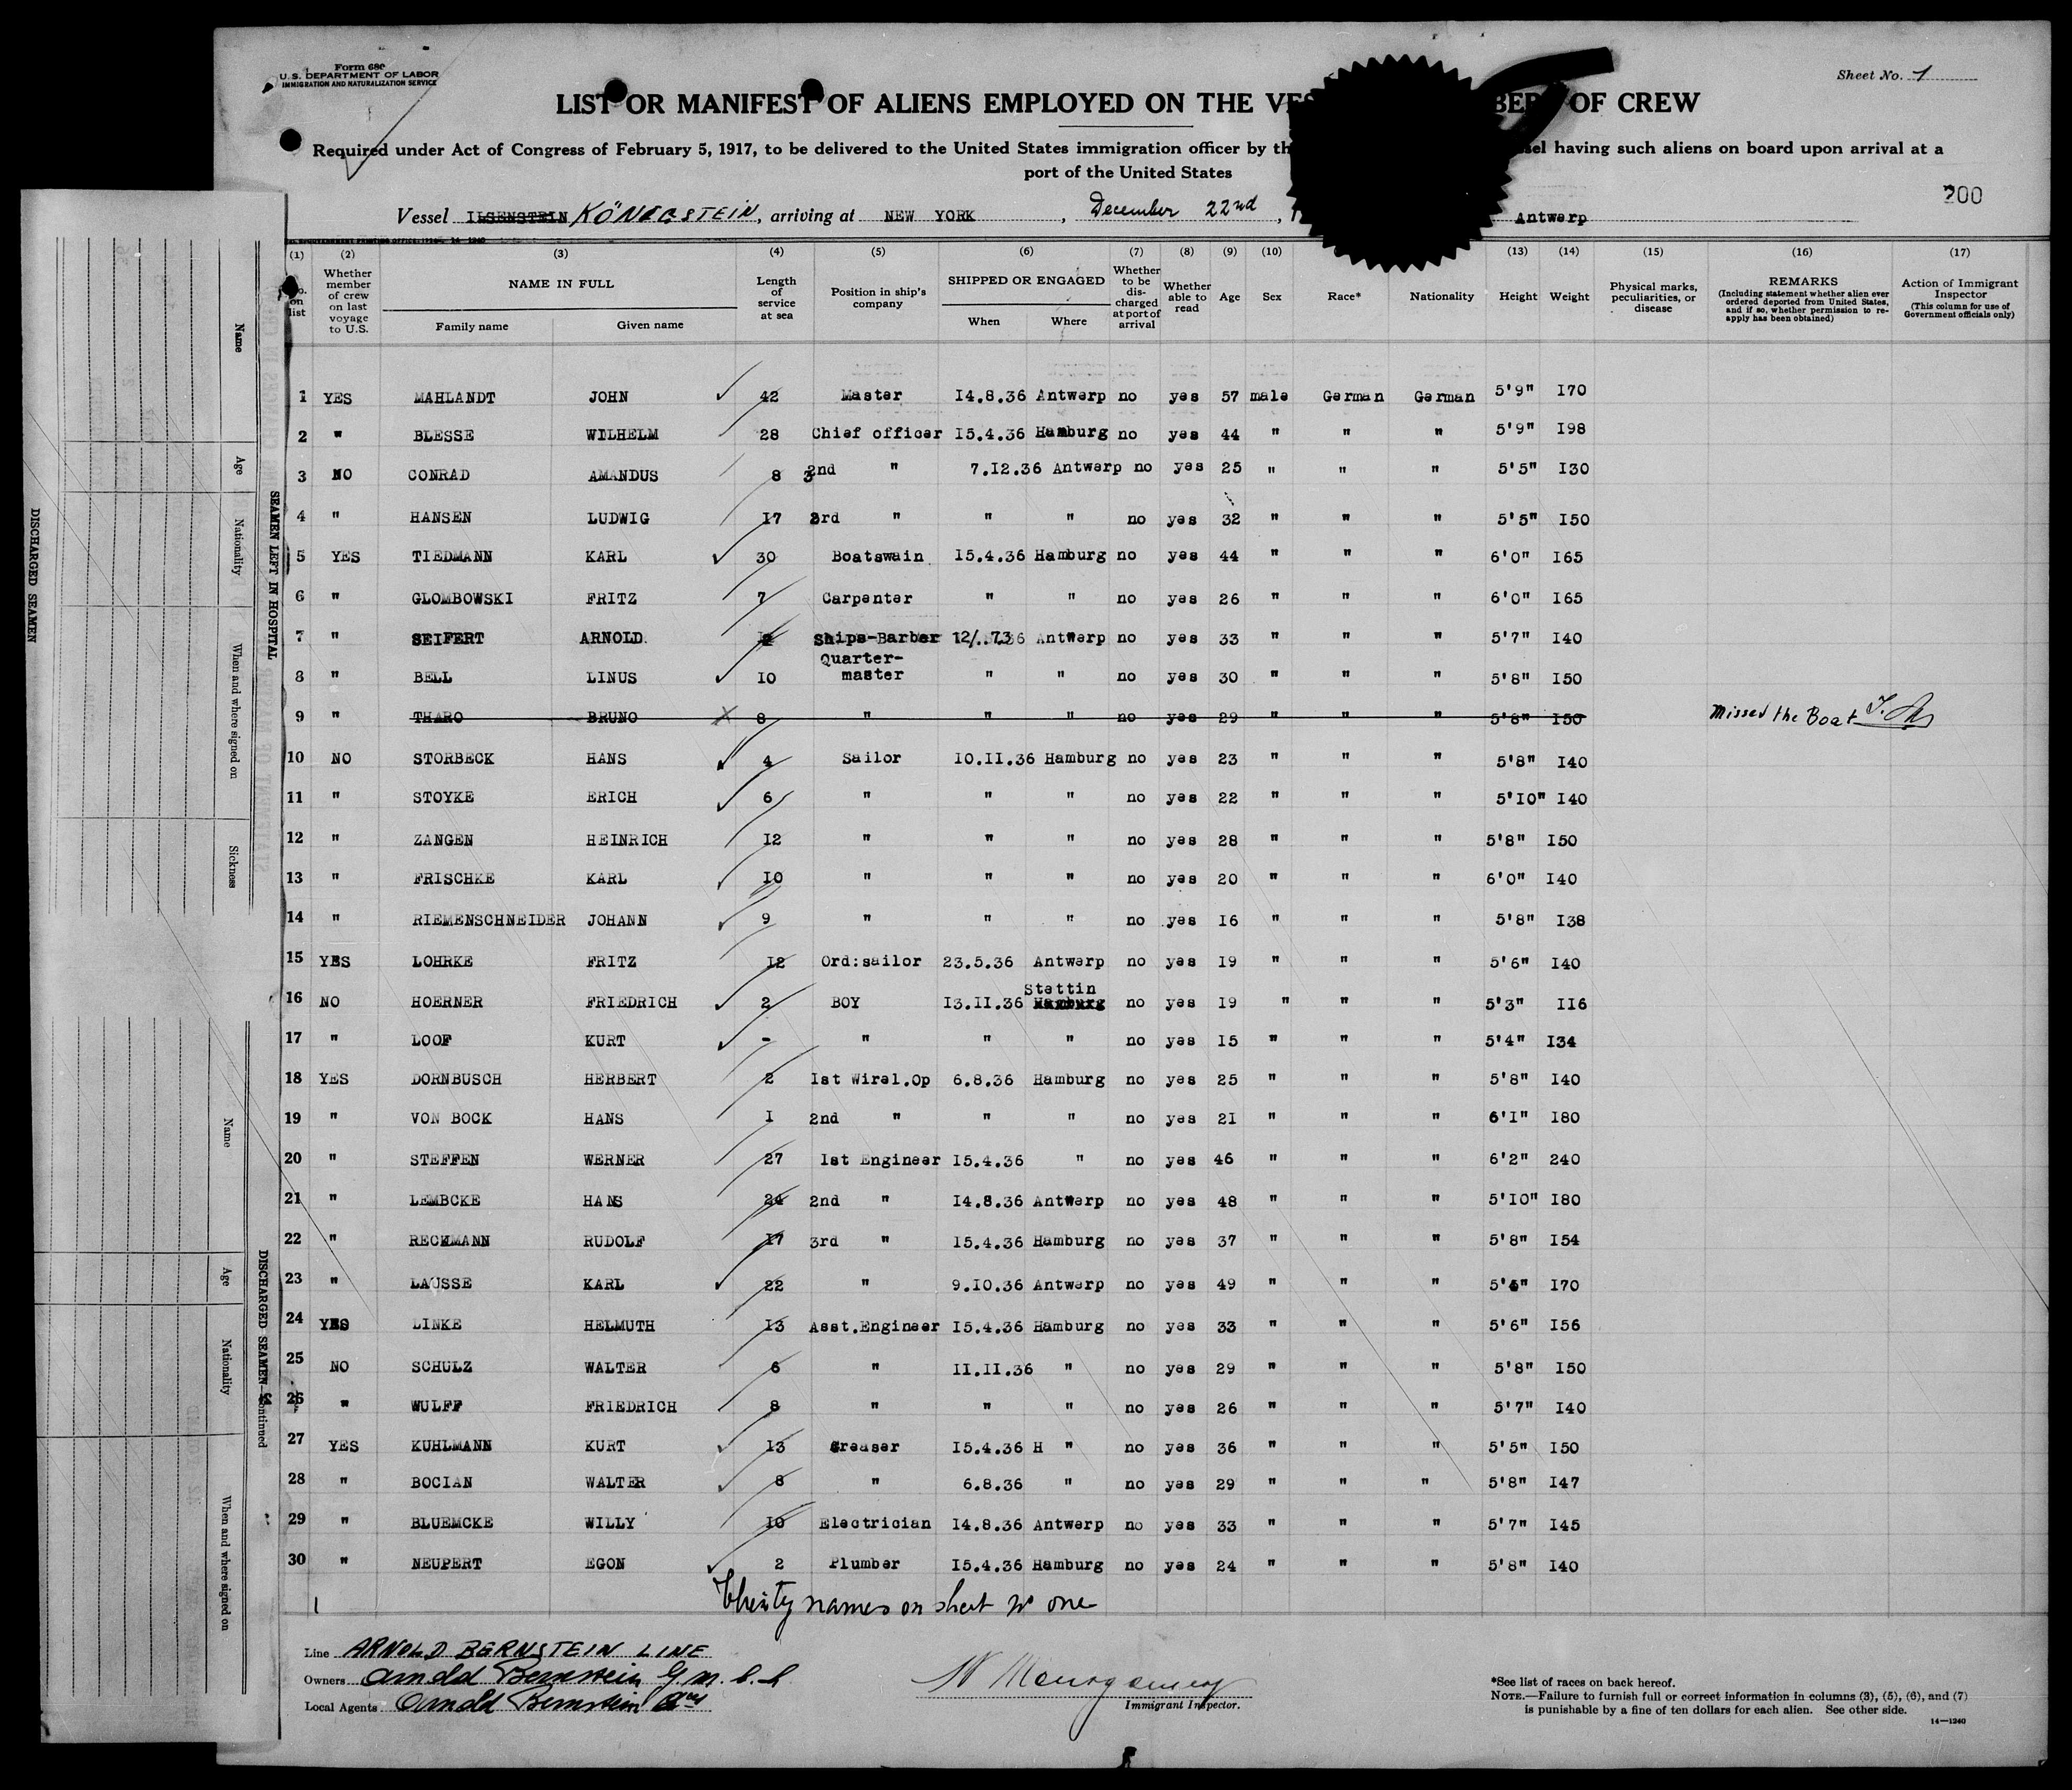 Form 680
U.S. DEPARTMENT OF LABOR
IMMIGRATION AND NATURALIZATION SERVICE
Sheet No. 1
LIST OR MANIFEST OF ALIENS EMPLOYED ON THE OF CREW
Required under Act of Congress of February 5, 1917, to be delivered to the United States immigration officer by having such aliens on board upon arrival at a
port of the United States
200
Vessel ILSENSTEIN KÖNIGSTEIN, arriving at NEW YORK, December 22nd, Antwerp
(1) (2) (3) (4) (5) (6) (7) (8) (9) (10) (13) (14) (15) (16) (17)
No. on list
Whether member of crew on last voyage to U.S.
NAME IN FULL
Family name Given name
Length of service at sea
Position in ship's company
SHIPPED OR ENGAGED
When Where
Whether to be discharged at port of arrival
Whether able to read
Age Sex Race* Nationality Height Weight
Physical marks, peculiarities, or disease
REMARKS
(Including statement whether alien ever ordered deported from United States, and if so, whether permission to reapply has been obtained)
Action of Immigrant Inspector
(This column for use of Government officials only)
1 YES MAHLANDT JOHN 42 Master 14.8.36 Antwerp no yes 57 male German German 5'9" 170
2 " BLESSE WILHELM 28 Chief officer 15.4.36 Hamburg no yes 44 " " " 5'9" 198
3 NO CONRAD AMANDUS 8 2nd " 7.12.36 Antwerp no yes 25 " " " 5'5" 130
4 " HANSEN LUDWIG 17 3rd " " " no yes 32 " " " 5'5" 150
5 YES TIEDMANN KARL 30 Boatswain 15.4.36 Hamburg no yes 44 " " " 6'0" 165
6 " GLOMBOWSKI FRITZ 7 Carpenter " " no yes 26 " " " 6'0" 165
7 " SEIFERT ARNOLD Ships-Barber Antwerp no yes 33 " " " 5'7" 140
8 " BELL LINUS 10 Quarter-master " " no yes 30 " " " 5'8" 150
9 " THARO BRUNO 8 " " " no yes 29 " " " 5'8" 150 Missed the Boat
10 NO STORBECK HANS 4 Sailor 10.11.36 Hamburg no yes 23 " " " 5'8" 140
11 " STOYKE ERICH 6 " " " no yes 22 " " " 5'10" 140
12 " ZANGEN HEINRICH 12 " " " no yes 28 " " " 5'8" 150
13 " FRISCHKE KARL 10 " " " no yes 20 " " " 6'0" 140
14 " RIEMENSCHNEIDER JOHANN 9 " " " no yes 16 " " " 5'8" 138
15 YES LOHRKE FRITZ 12 Ord:sailor 23.5.36 Antwerp no yes 19 " " " 5'6" 140
16 NO HOERNER FRIEDRICH 2 BOY 13.11.36 Stettin Hamburg no yes 19 " " " 5'3" 116
17 " LOOF KURT - " " " no yes 15 " " " 5'4" 134
18 YES DORNBUSCH HERBERT 2 1st Wirel.Op 6.8.36 Hamburg no yes 25 " " " 5'8" 140
19 " VON BOCK HANS 1 2nd " " " no yes 21 " " " 6'1" 180
20 " STEFFEN WERNER 27 1st Engineer 15.4.36 " no yes 46 " " " 6'2" 240
21 " LEMBCKE HANS 24 2nd " 14.8.36 Antwerp no yes 48 " " " 5'10" 180
22 " RECKMANN RUDOLF 17 3rd " 15.4.36 Hamburg no yes 37 " " " 5'8" 154
23 " LAUSSE KARL 22 " 9.10.36 Antwerp no yes 49 " " " 170
24 YES LINKE HELMUTH 13 Asst.Engineer 15.4.36 Hamburg no yes 33 " " " 5'6" 156
25 NO SCHULZ WALTER 6 " 11.11.36 " no yes 29 " " " 5'8" 150
26 " WULFF FRIEDRICH 8 " " " no yes 26 " " " 5'7" 140
27 YES KUHLMANN KURT 13 Greaser 15.4.36 H " no yes 36 " " " 5'5" 150
28 " BOCIAN WALTER 8 " 6.8.36 " no yes 29 " " " 5'8" 147
29 " BLUEMCKE WILLY 10 Electrician 14.8.36 Antwerp no yes 33 " " " 5'7" 145
30 " NEUPERT EGON 2 Plumber 15.4.36 Hamburg no yes 24 " " " 5'8" 140
Thirty names on sheet No one
Line ARNOLD BERNSTEIN LINE
Owners Arnold Bernstein G.m.b.h
Local Agents Arnold Bernstein
Immigrant Inspector.
*See list of races on back hereof.
NOTE.—Failure to furnish full or correct information in columns (3), (5), (6), and (7)
is punishable by a fine of ten dollars for each alien. See other side.
14—1240
DISCHARGED SEAMEN
SEAMEN LEFT IN HOSPITAL
Name Age Nationality When and where signed on Sickness
DISCHARGED SEAMEN—Continued
Name Age Nationality When and where signed on